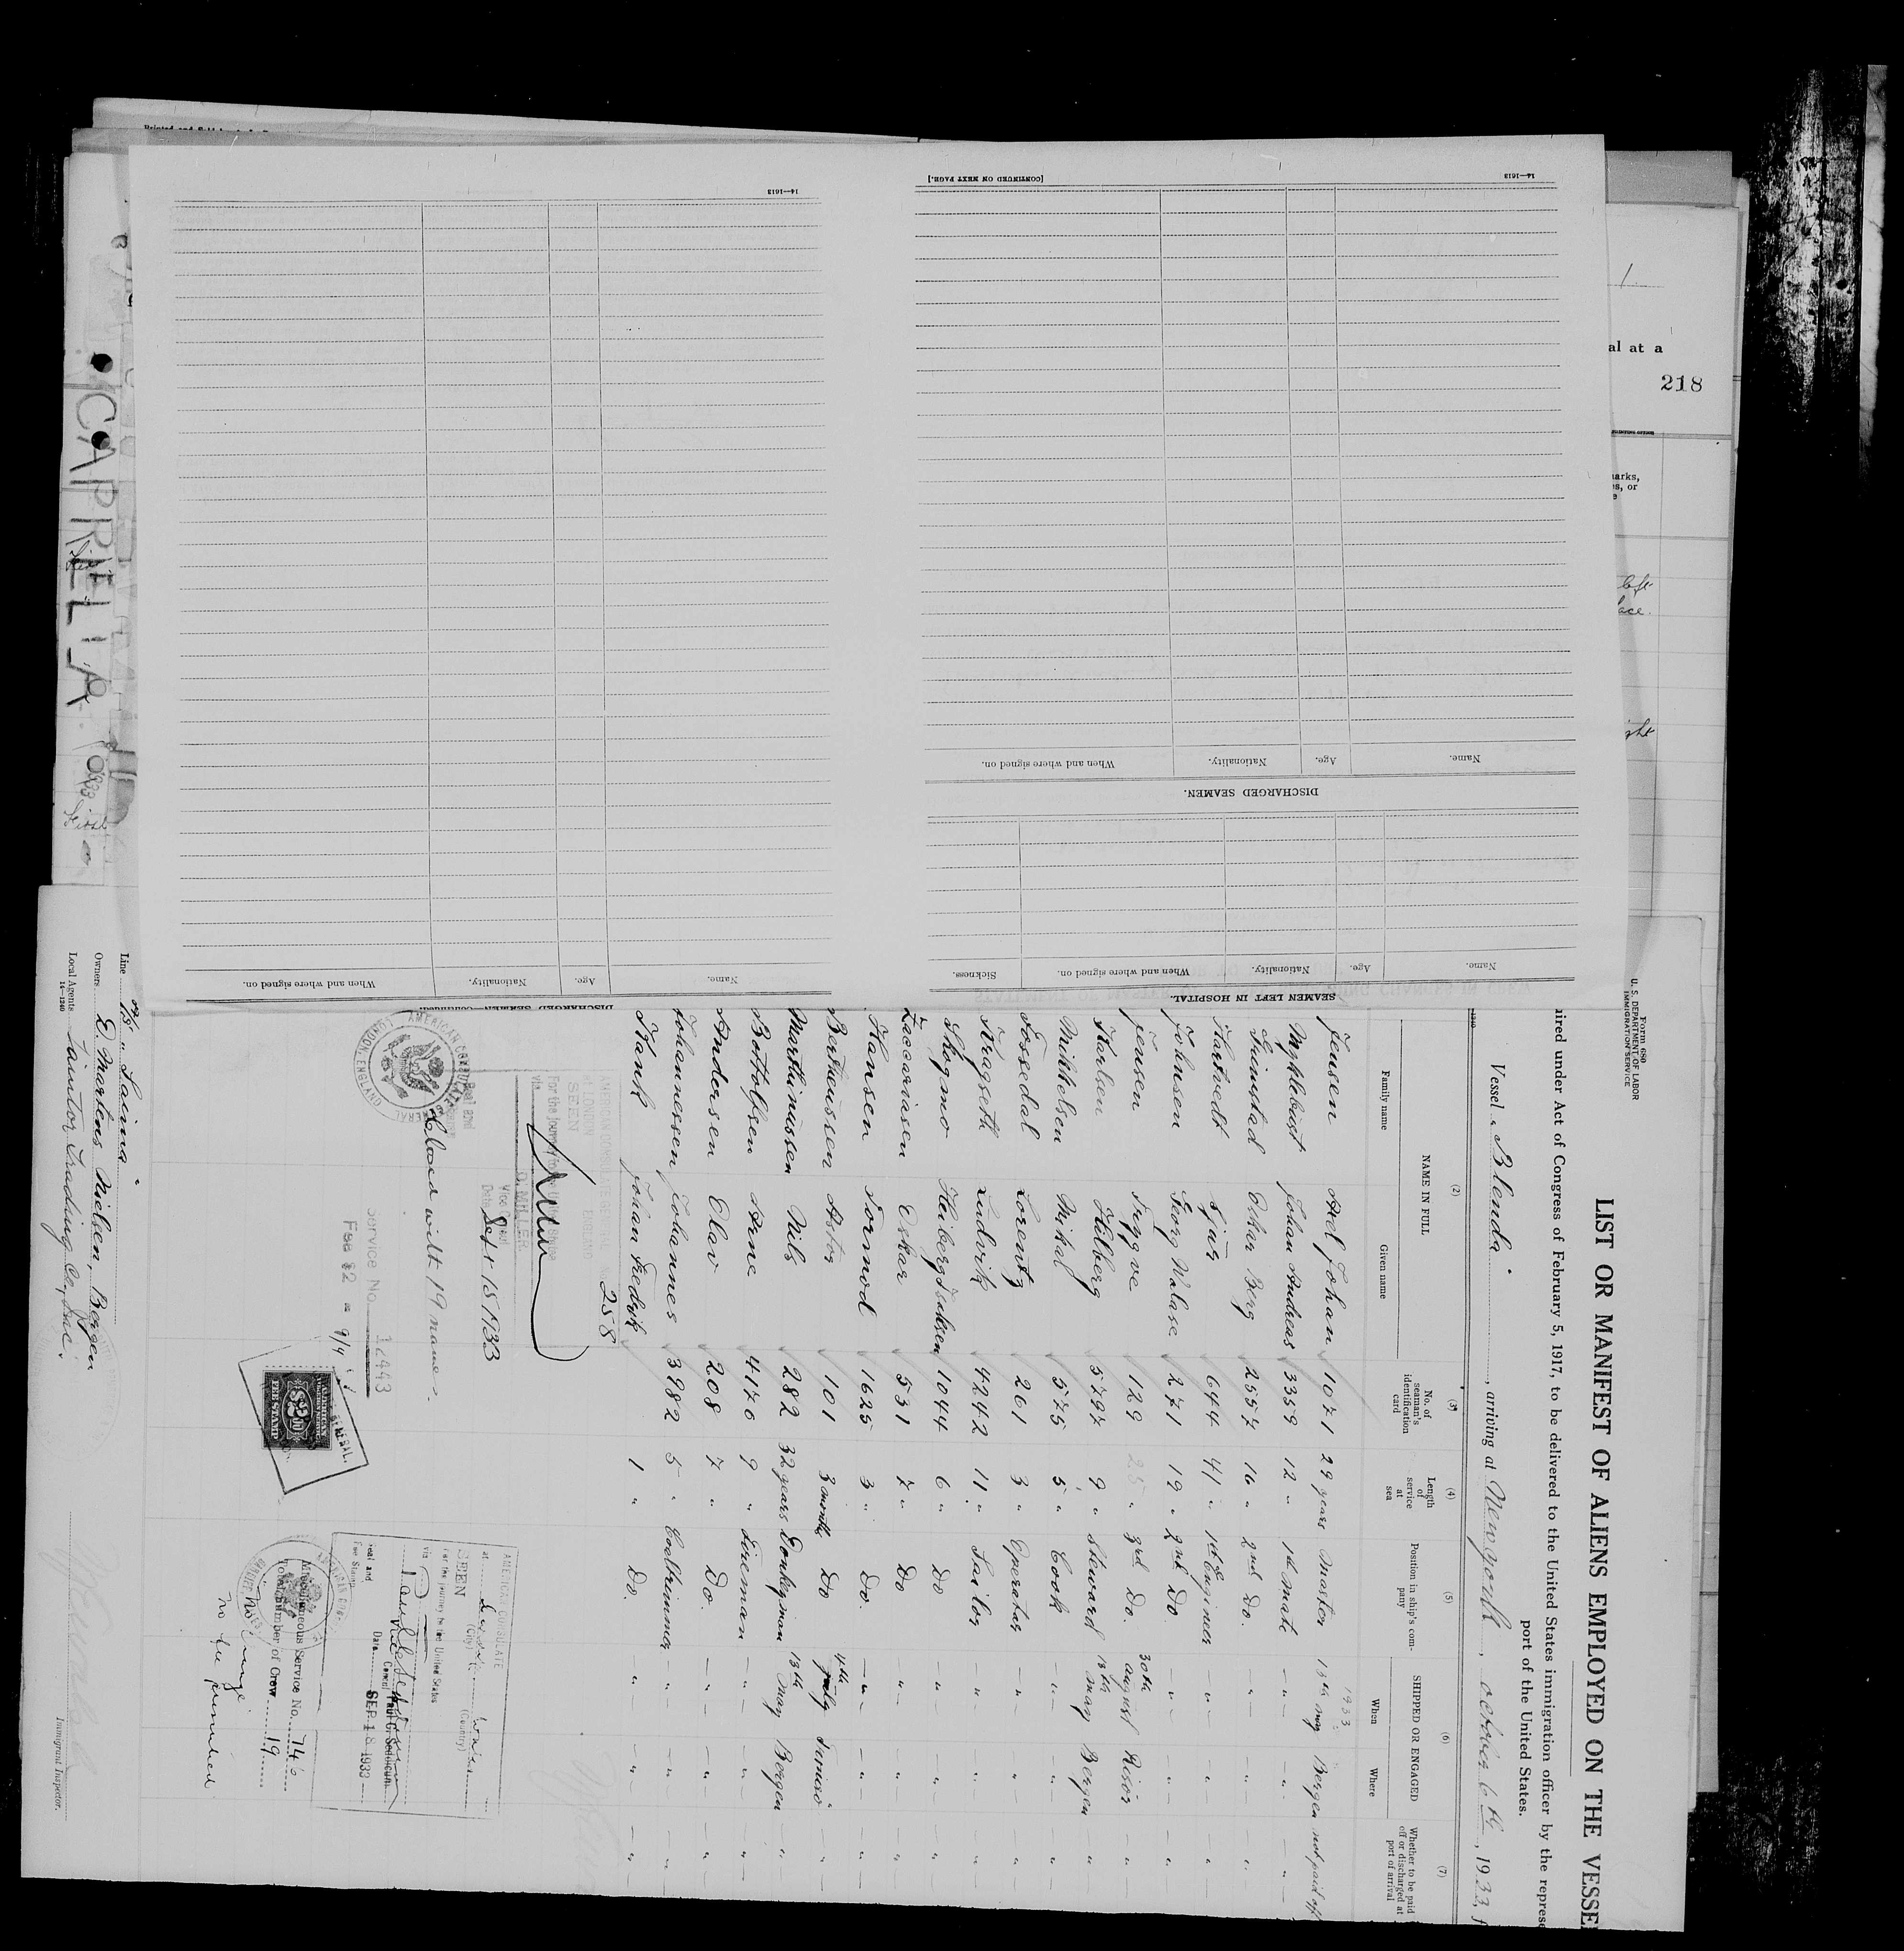 [CONTINUED ON NEXT PAGE.]
14—1613
14—1613
SEAMEN LEFT IN HOSPITAL.
Name. Age. Nationality. When and where signed on. Sickness.
DISCHARGED SEAMEN.
Name. Age. Nationality. When and where signed on.
DISCHARGED SEAMEN—Continued.
Name. Age. Nationality. When and where signed on.
al at a
218
arks,
es, or
CAPRELIA
Form 680
U. S. DEPARTMENT OF LABOR
IMMIGRATION SERVICE
LIST OR MANIFEST OF ALIENS EMPLOYED ON THE VESSEL
ired under Act of Congress of February 5, 1917, to be delivered to the United States immigration officer by the represe
port of the United States.
Vessel "Blenda", arriving at Newyork, october 6th, 1933, f
(2) (3) (4) (5) (6) (7)
NAME IN FULL
Family name Given name
No. of seaman's identification card
Length of service at sea
Position in ship's company
SHIPPED OR ENGAGED
When Where
Whether to be paid off or discharged at port of arrival
1933
Jensen Axel Johan 1071 29 years Master 13th may Bergen not paid off
Myklebust Johan Andreas 3359 12 " 1st mate " " "
Grimstad Oskar Berg 2557 16 " 2nd Do. " " "
Hartvedt Sjur 644 41 " 1st Engineer " " "
Johnsen Georg Walase 271 19 " 2nd Do " " "
Jensen Trygve 129 25 " 3rd Do. 30th august Risör "
Karlsen Hilberg 5797 9 " Steward 13th may Bergen "
Mikkelsen Mikal 575 5 " Cook " " "
Fossedal Lorentz 261 3 " Operator " " "
Krageth Ludvik 4242 11 " Sailor " " "
Skogmo Heiberg Isaksen 1044 6 " Do " " "
Zaccariasen Oskar 531 7 " Do " " "
Hansen Tormod 1625 3 " Do. " " "
Bertheussen Astor 101 3 months Do 4th july "
Marthinussen Nils 282 32 years Donkeyman 13th May Bergen "
Bottolfsen Arne 4170 9 " Fireman " " "
Andersen Olav 208 7 " Do " " "
Johannesen Johannes 3982 5 " Coaltrimmer " " "
Hank Johan Fredrik 1 " Do. " " "
258
AMERICAN CONSULATE GENERAL
LONDON ENGLAND
SEEN
For the journey to the United States
via
D. MILLER
Vice Consul
Date Sept 15 1933
AMERICAN CONSULATE GENERAL
LONDON, ENGLAND
Closed with 19 names.
Service No. 12443
AMERICAN
FEE STAMP
AMERICAN CONSULATE
at
(City) (Country)
SEEN
For the journey to the United States
via
Vice Consul
Date SEP 18 1933
Seal and
Fee Stamp
Miscellaneous Service No. 746
Total number of Crew 19
No charge
no fee prescribed
Line
Owners E. Martens Nielsen, Bergen
Local Agents Taintor Trading Co, Inc.
14—1240
Immigrant Inspector.